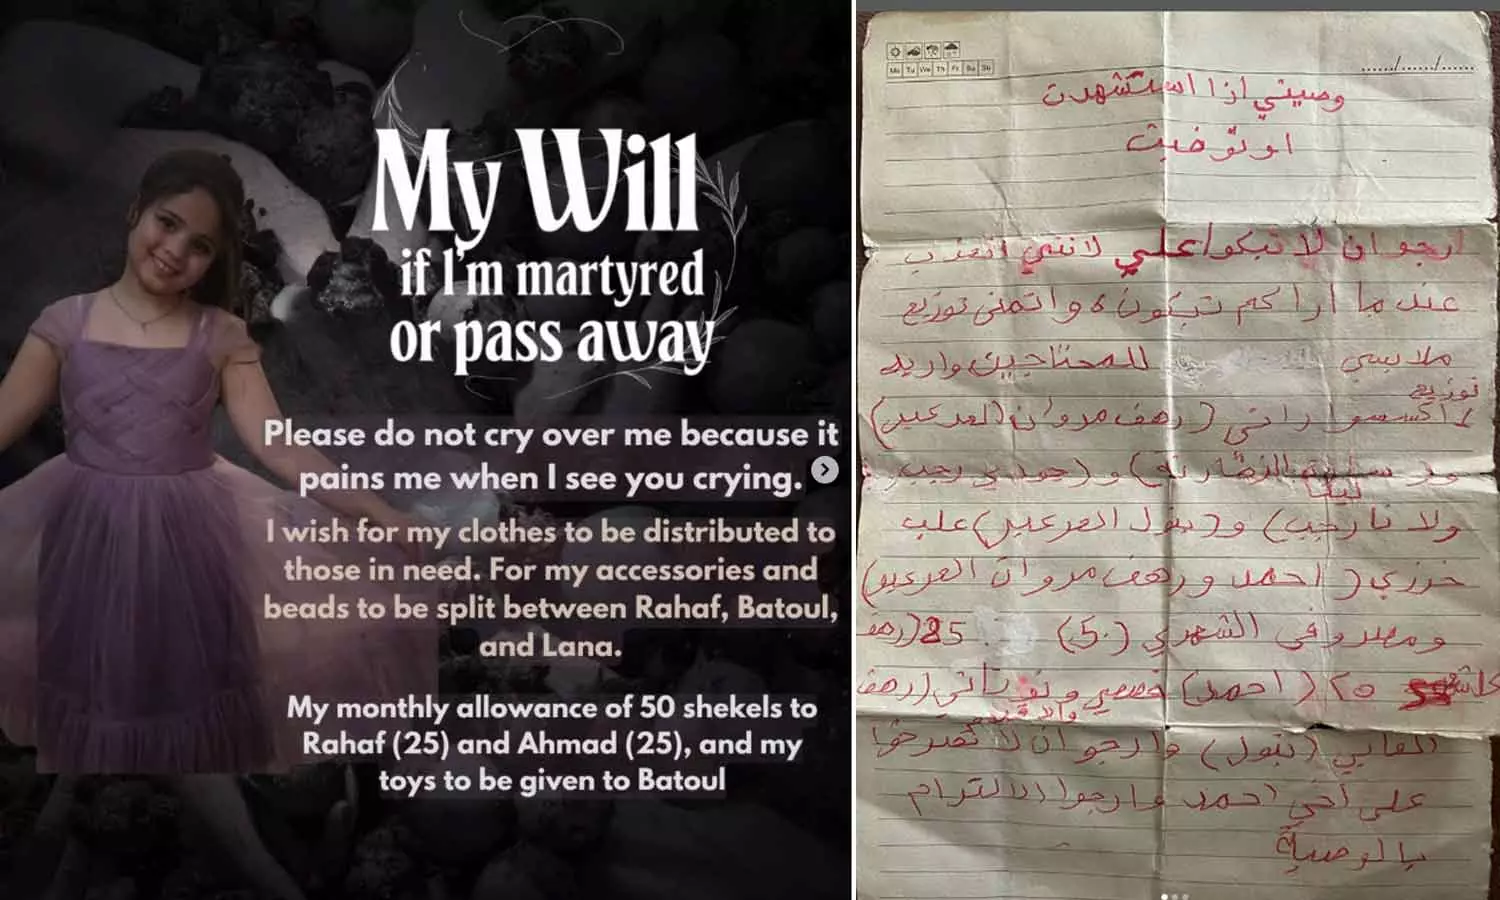 My Will
if I'm martyred
or pass away
Please do not cry over me because it
pains me when I see you crying.
I wish for my clothes to be distributed to
those in need. For my accessories and
beads to be split between Rahaf, Batoul,
and Lana.
My monthly allowance of 50 shekels to
Rahaf (25) and Ahmad (25), and my
toys to be given to Batoul
Mo Tu We Th Fr Sa Su
...../....../......
وصيتي اذا استشهدت
او توفيت
ارجو ان لا تبكوا علي لانني اتعذب
عند ما اراكم تبكون و اتمنى توزيع
ملابسي للمحتاجين واريد
توزيع
اكسسوراتي (رهف مروان العرعير)
و(جودي رجب
ولانا رجب) و(بتول العرعير) علب
خرزي (احمد ورهف مروان العرعير)
ومصروفي الشهري (50) 25 (رهف
٢٥ (احمد) قصصي و (رهف
العابي (بتول) وارجو ان لا تصرخو
على اخي احمد وارجوا الالتزام
بالوصية